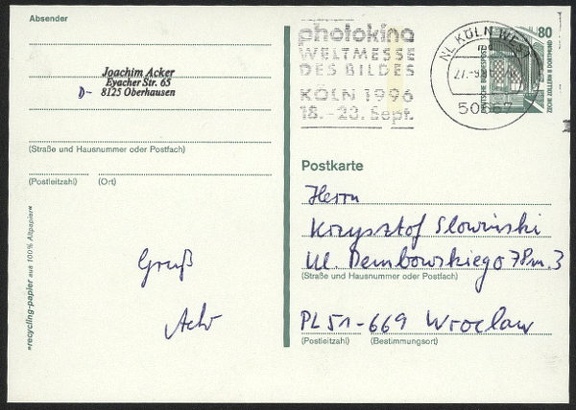 Absender
Joachim Acker
Eyacher Str. 65
D- 8125 Oberhausen
(Straße und Hausnummer oder Postfach)
(Postleitzahl) (Ort)
»recycling-papier aus 100% Altpapier«
Gruß
photokina
WELTMESSE
DES BILDES
KÖLN 1996
18.-23. Sept.
NL KÖLN WEST
80
DEUTSCHE BUNDESPOST
ZECHE ZOLLERN II DORTMUND
Postkarte
Herrn
Krzysztof Slowinski
Ul. Dembowskiego 7B m. 3
(Straße und Hausnummer oder Postfach)
PL 51-669 Wroclaw
(Postleitzahl) (Bestimmungsort)